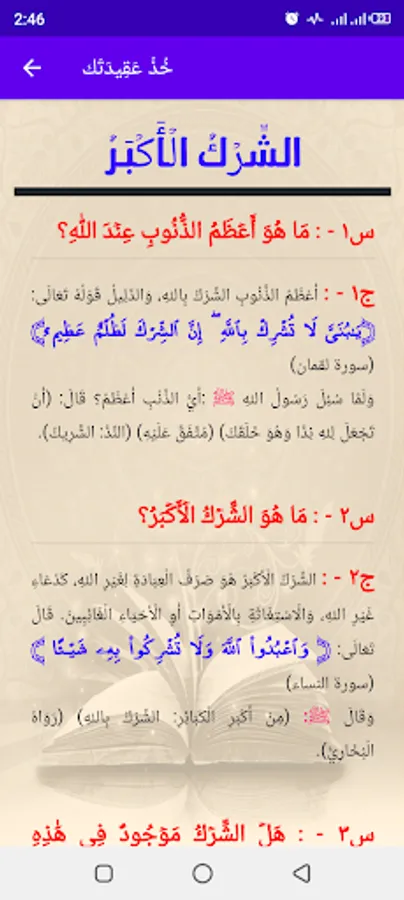 2:46
خُذْ عَقِيدَتَك
الشِّرْكُ الْأَكْبَرُ
س١ - : مَا هُوَ أَعْظَمُ الذُّنُوبِ عِنْدَ اللهِ؟
ج١ - : أَعْظَمُ الذُّنُوبِ الشِّرْكُ بِاللهِ، وَالدَّلِيلُ قَوْلُهُ تَعَالَى:
﴿يَٰبُنَيَّ لَا تُشْرِكْ بِٱللَّهِۖ إِنَّ ٱلشِّرْكَ لَظُلْمٌ عَظِيمٌ﴾
(سورة لقمان)
وَلَمَّا سُئِلَ رَسُولُ اللهِ ﷺ :أَيُّ الذَّنْبِ أَعْظَمُ؟ قَالَ: (أَنْ
تَجْعَلَ لِلهِ نِدًّا وَهُوَ خَلَقَكَ) (مُتَّفَقٌ عَلَيْهِ) (النِّدُّ: الشَّرِيكُ).
س٢ - : مَا هُوَ الشِّرْكُ الْأَكْبَرُ؟
ج٢ - : الشِّرْكُ الْأَكْبَرُ هُوَ صَرْفُ الْعِبَادَةِ لِغَيْرِ اللهِ، كَدُعَاءِ
غَيْرِ اللهِ، وَالْاسْتِغَاثَةِ بِالْأَمْوَاتِ أَوِ الْأَحْيَاءِ الْغَائِبِينَ. قَالَ
تَعَالَى: ﴿ وَٱعْبُدُوا۟ ٱللَّهَ وَلَا تُشْرِكُوا۟ بِهِۦ شَيْـًٔا ﴾
(سورة النساء)
وَقَالَ ﷺ: (مِنْ أَكْبَرِ الْكَبَائِرِ: الشِّرْكُ بِاللهِ) (رَوَاهُ
الْبُخَارِيُّ).
س٣ - : هَلْ الشِّرْكُ مَوْجُودٌ فِي هَٰذِهِ